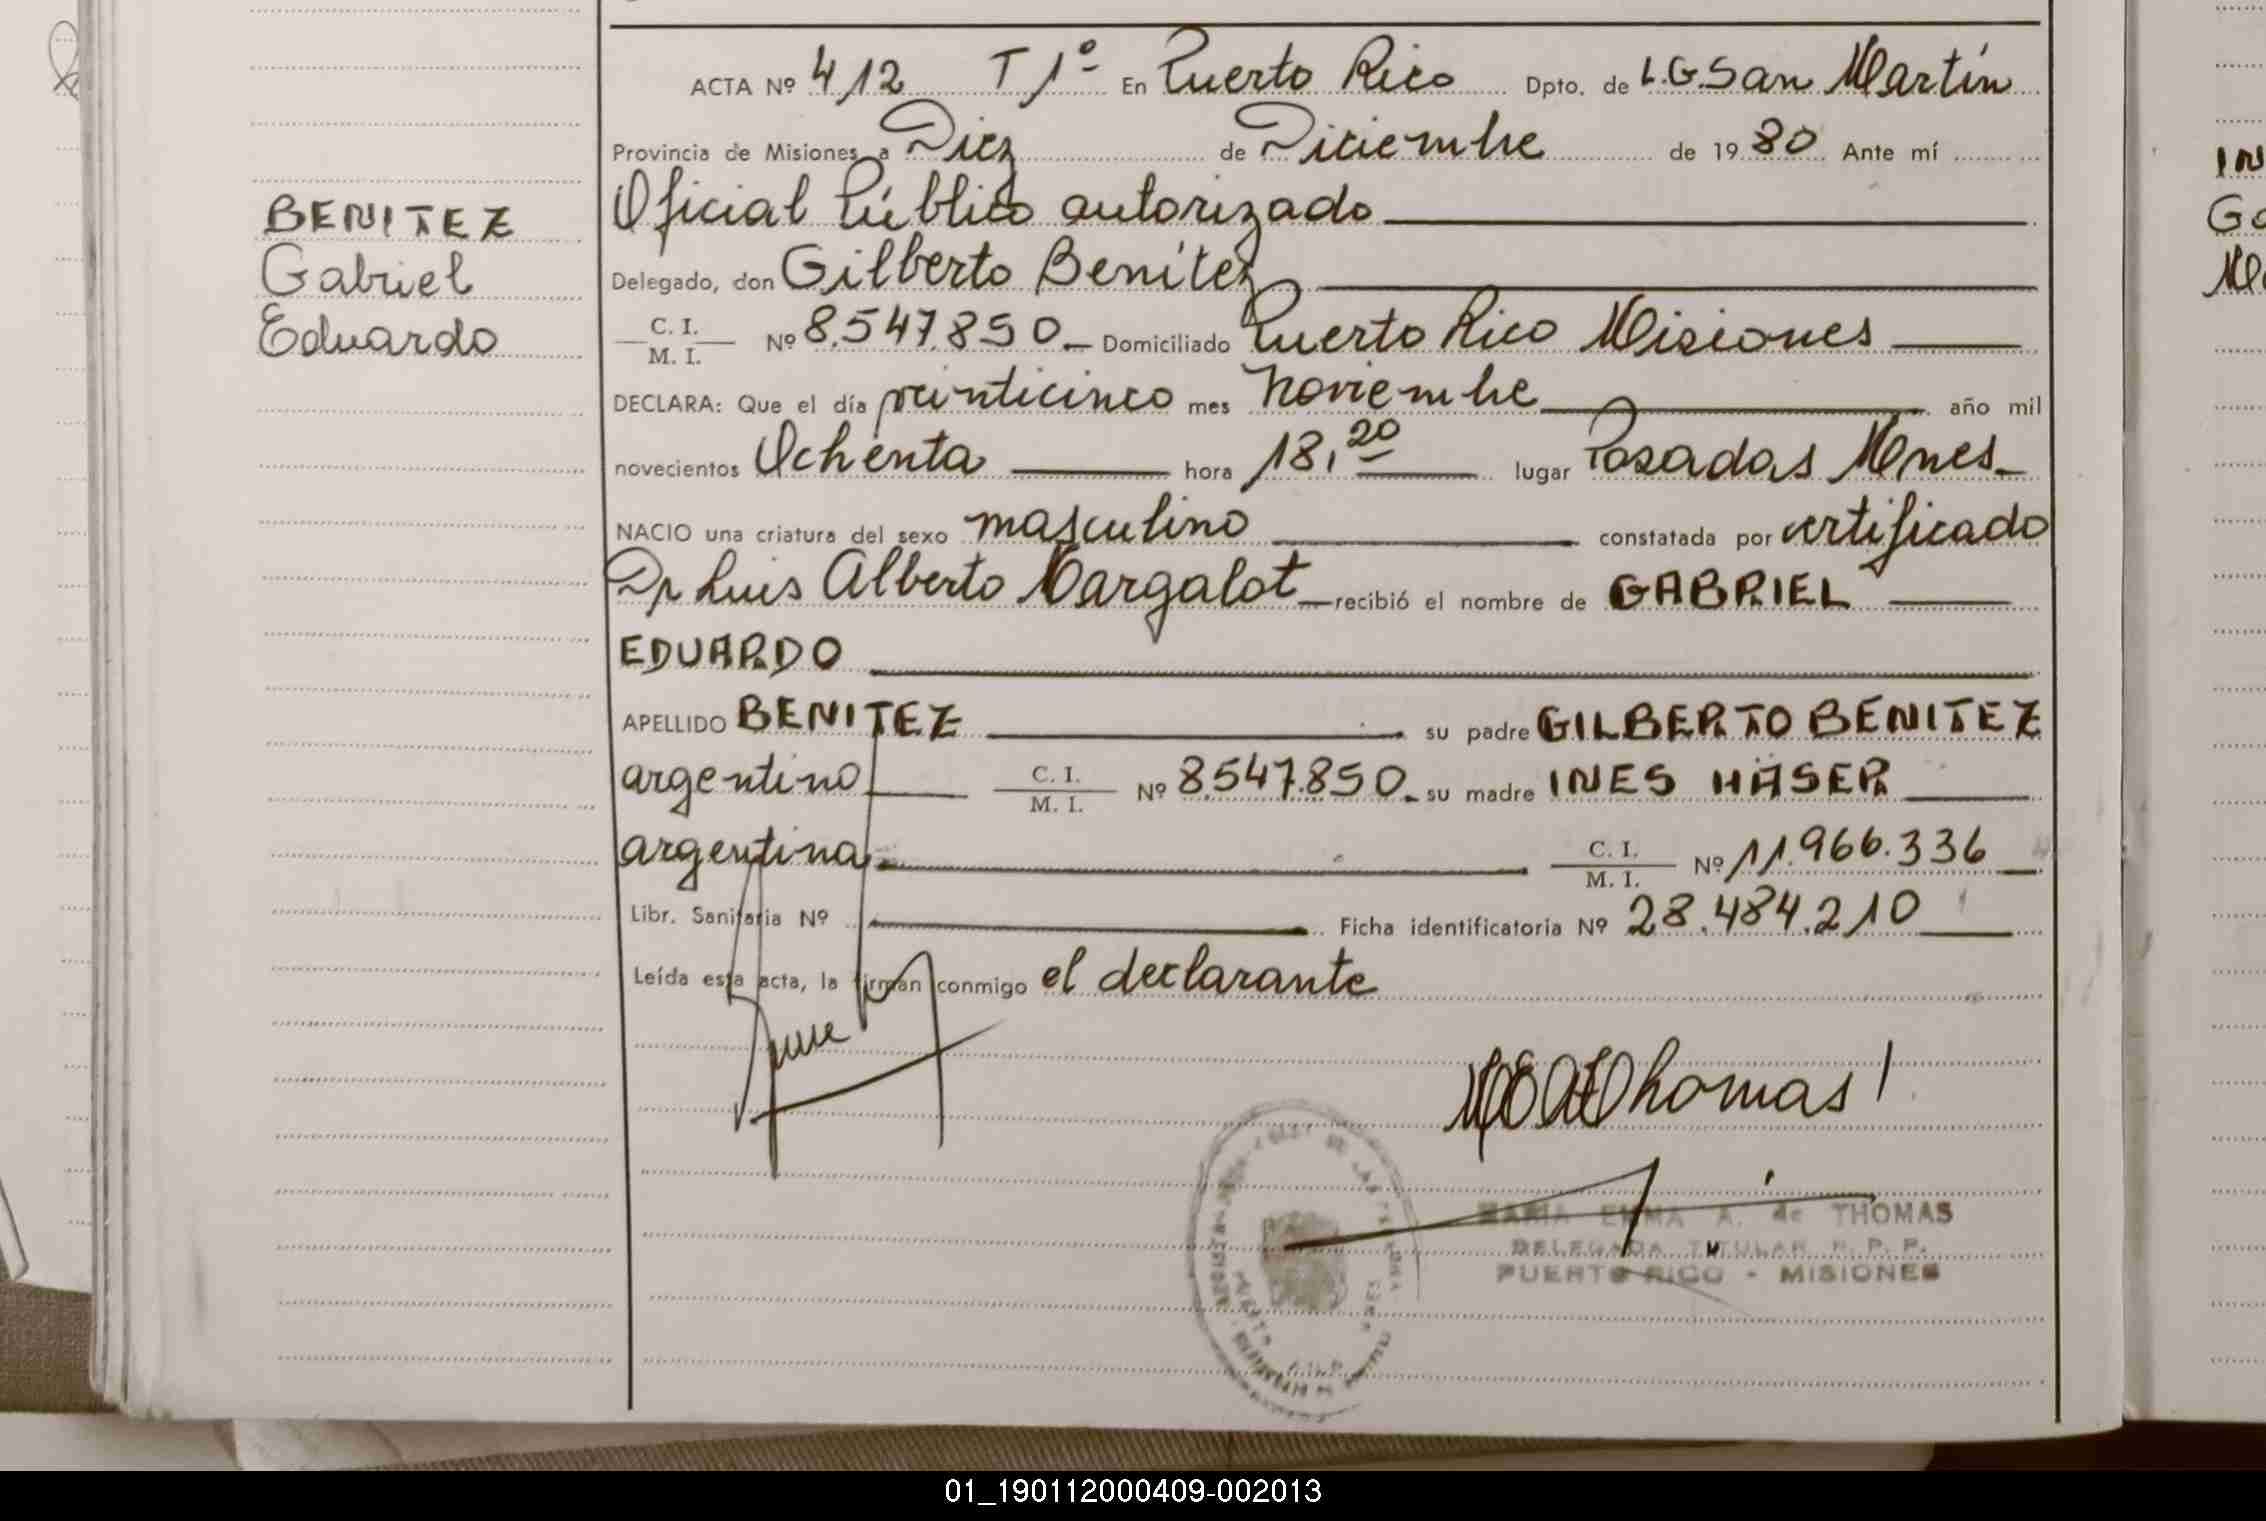 ACTA Nº 412 T 1º En Puerto Rico Dpto. de L.G.San Martín
Provincia de Misiones a Diez de Diciembre de 19 80 Ante mí
Oficial Público autorizado
Delegado, don Gilberto Benítez
C. I.
M. I.
Nº 8.547.850. Domiciliado Puerto Rico Misiones
DECLARA: Que el día veinticinco mes noviembre año mil
novecientos Ochenta hora 18,20 lugar Posadas Mnes
NACIO una criatura del sexo masculino constatada por certificado
Dr Luis Alberto Margalot recibió el nombre de GABRIEL
EDUARDO
APELLIDO BENITEZ su padre GILBERTO BENITEZ
argentino C. I. M. I. Nº 8.547.850. su madre INES HASER
argentina C. I. M. I. Nº 11.966.336
Libr. Sanitaria Nº Ficha identificatoria Nº 28.484.210
Leída esta acta, la firman conmigo el declarante
BENITEZ
Gabriel
Eduardo
Thomas
MARIA EMMA A. de THOMAS
DELEGADA TITULAR R. P. P.
PUERTO RICO - MISIONES
IN
01_190112000409-002013